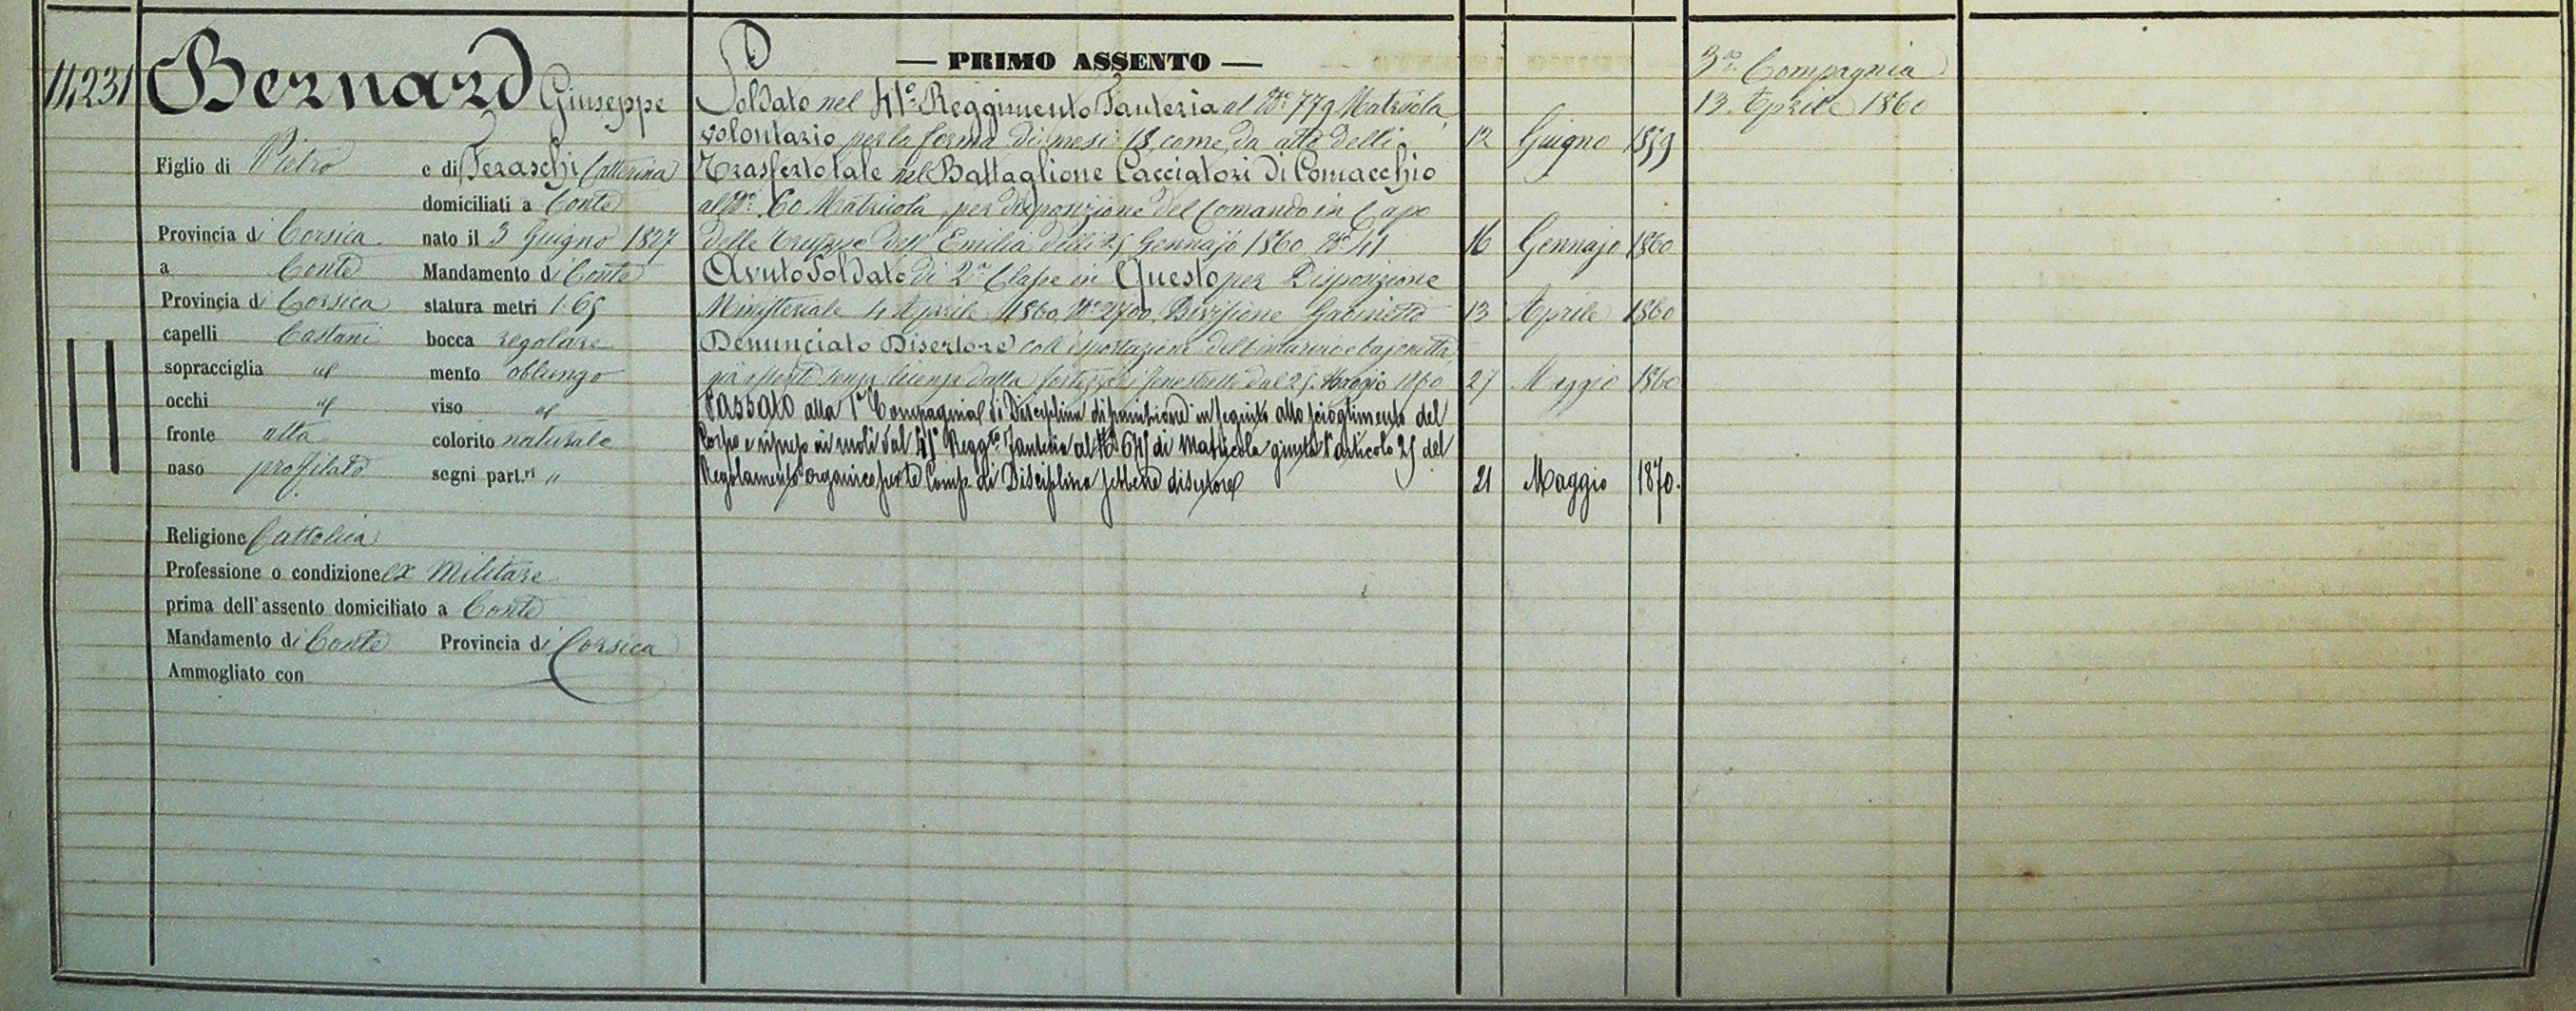 14231
Bernard Giuseppe
Figlio di Pietro e di Feraschi Catterina
domiciliati a Conte
Provincia di Corsica nato il 3 Giugno 1827
a Conte Mandamento di Conte
Provincia di Corsica statura metri 1.65
capelli Castani bocca regolare
sopracciglia id mento oblungo
occhi id viso id
fronte alta colorito naturale
naso proffilato segni part.ri "
Religione Cattolica
Professione o condizione ex Militare
prima dell'assento domiciliato a Conte
Mandamento di Conte Provincia di Corsica
Ammogliato con
— PRIMO ASSENTO —
Soldato nel 41° Reggimento Fanteria al N° 779 Matricola
volontario per la ferma di mesi 18, come da atto delli 12 Giugno 1859
Trasferto tale nel Battaglione Cacciatori di Comacchio
al N° 60 Matricola, per disposizione del Comando in Capo
delle Truppe dell'Emilia delli 25 Gennajo 1860 N° 41 16 Gennajo 1860
Avuto Soldato di 2a Classe in Questo per Disposizione
Ministeriale 4 Aprile 1860, N° 2700, Divisione Gabinetto 13 Aprile 1860
Denunciato Disertore coll'esportazione della e bajonetta,
senza licenza dalla fortezza di Fenestrelle dal 25 Maggio 1860 27 Maggio 1860
Passato alla 1a Compagnia di Disciplina di punizione in seguito allo scioglimento del
Corpo e ripreso in ruoli dal 41° Regg.to Fanteria al N° di matricola giusta l'articolo 25 del
Regolamento organico per le Comp. di Disciplina sebbene disertore 21 Maggio 1870.
3a Compagnia
13 Aprile 1860